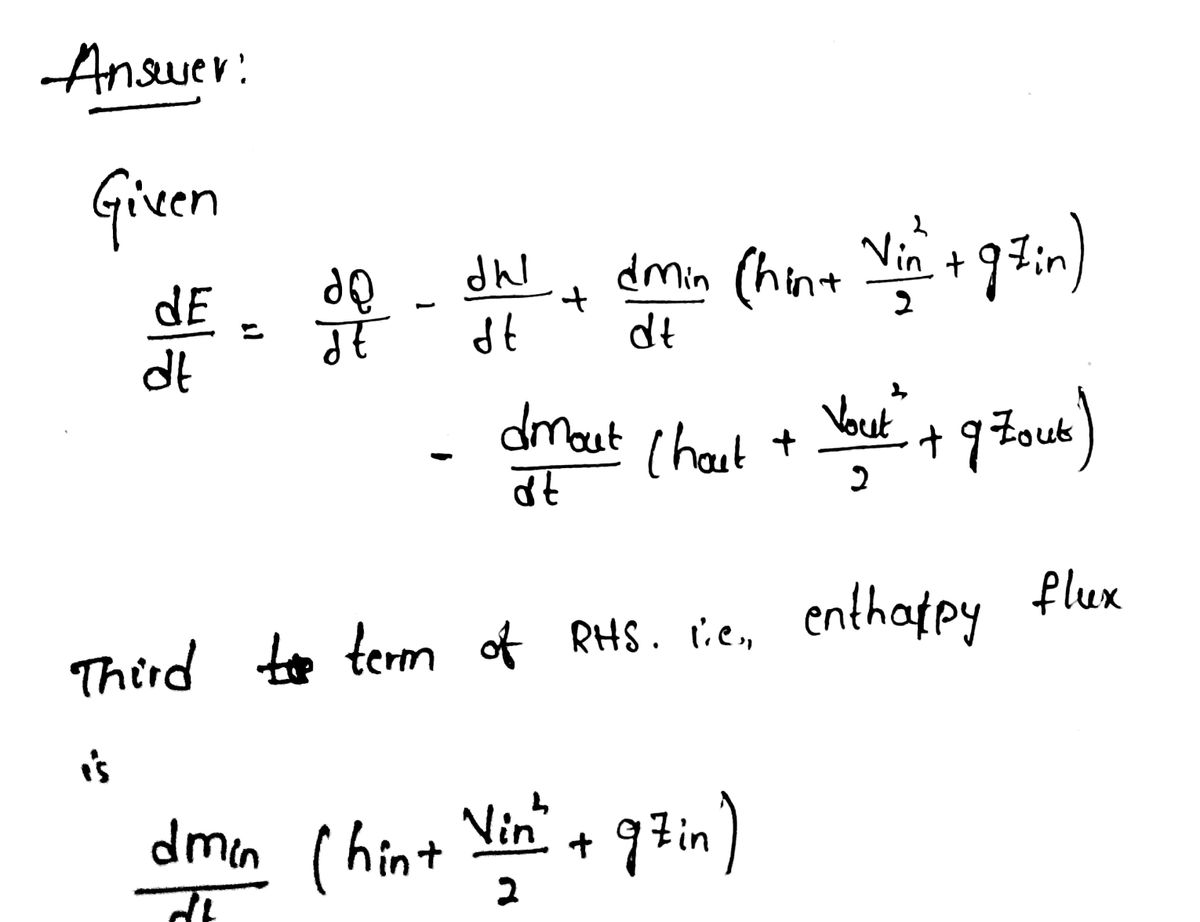 Answer:
Given
dE/dt = dQ/dt - dW/dt + dmin/dt (hin + Vin²/2 + gZin)
- dmout/dt (hout + Vout²/2 + gZout)
Third term of RHS. i.e., enthalpy flux
is
dmin/dt (hin + Vin²/2 + gZin)